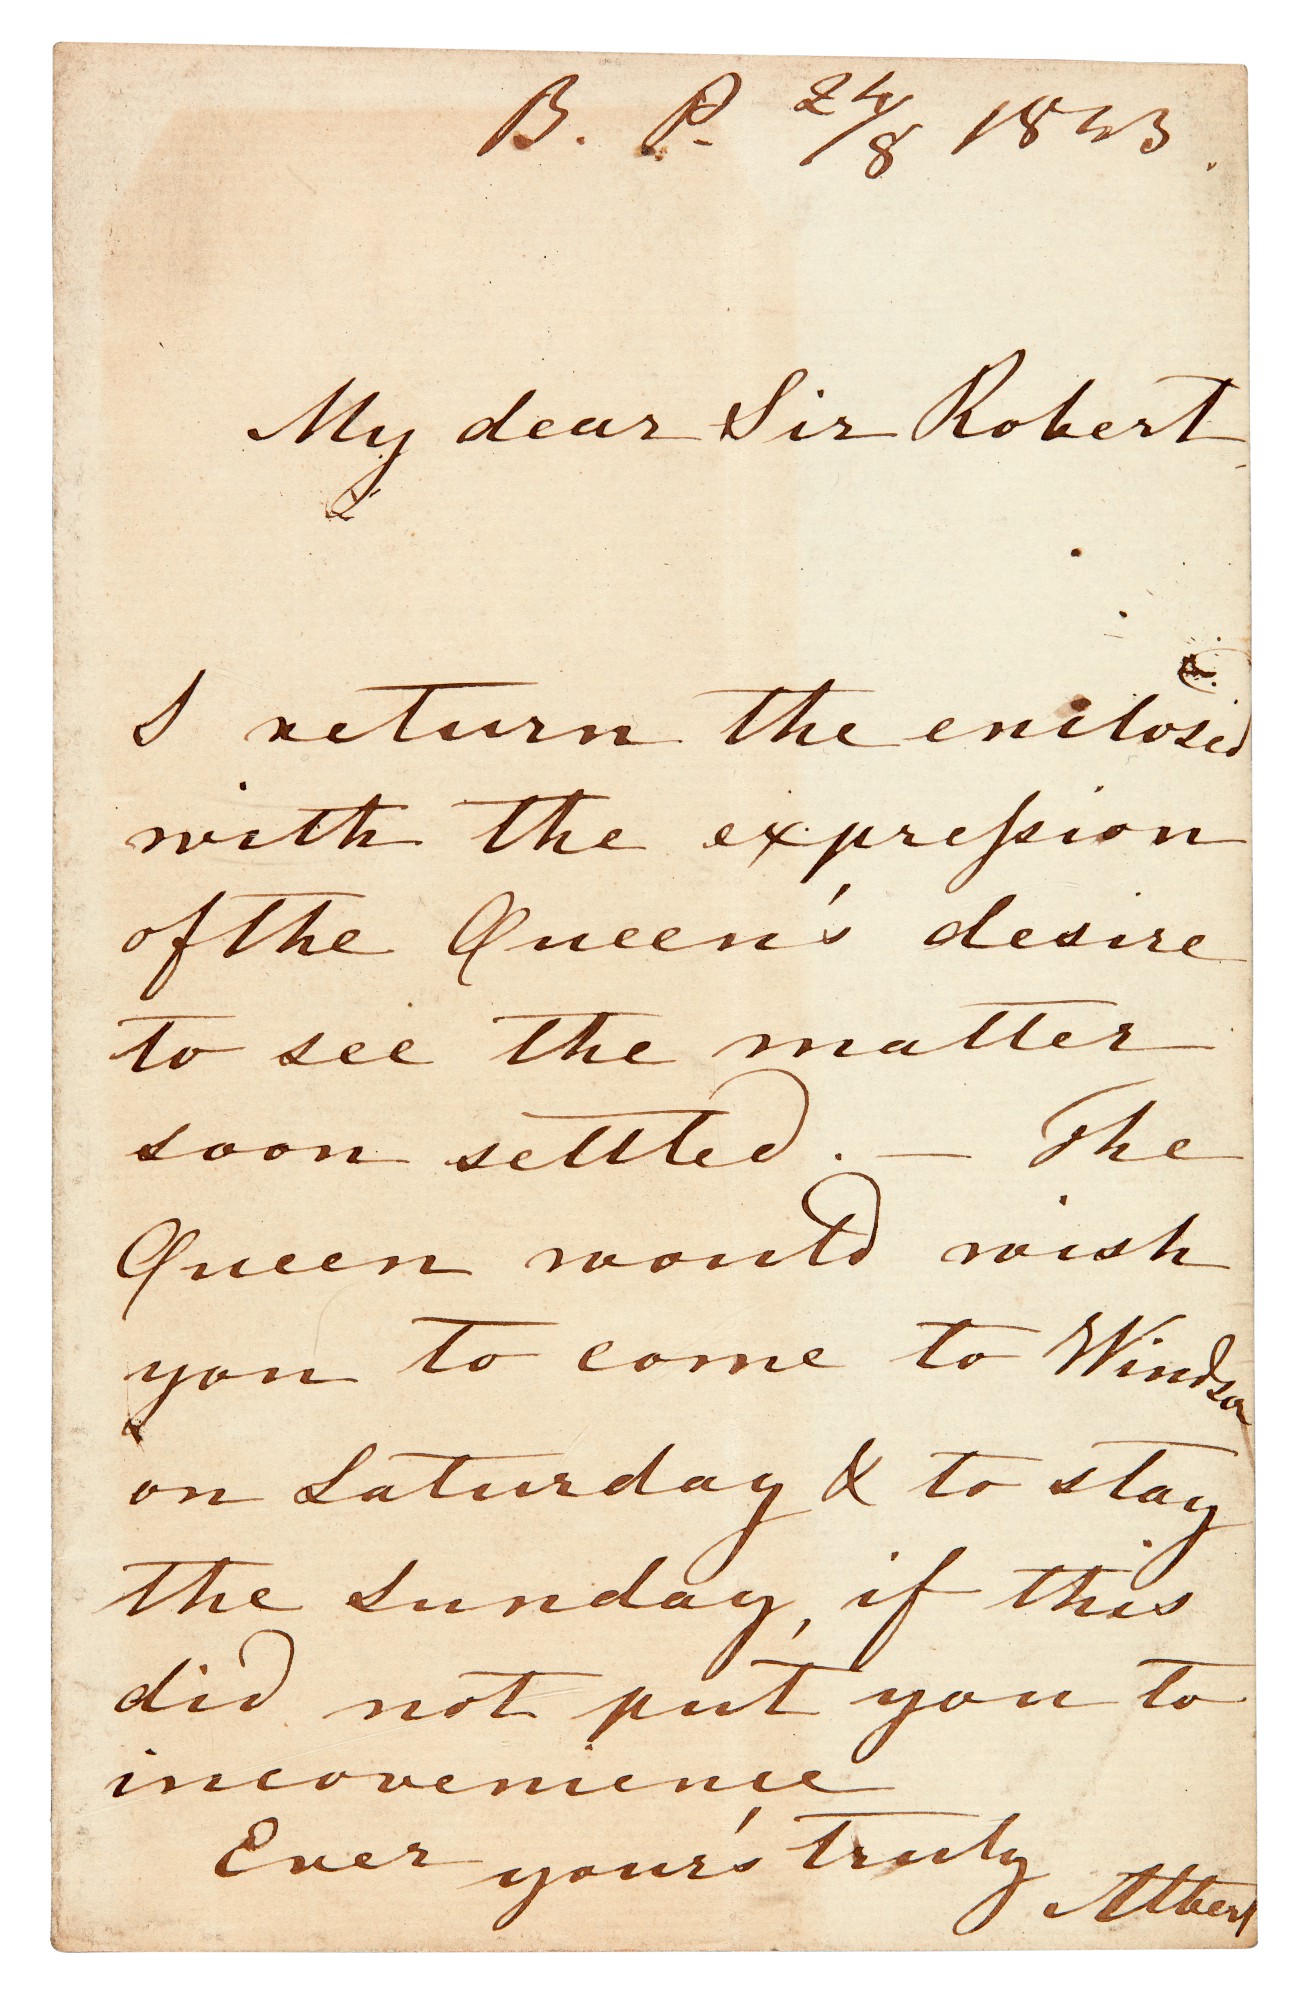 B. P. 24/8 1843.
My dear Sir Robert,
I return the enclosed
with the expreſsion
of the Queen's desire
to see the matter
soon settled. — The
Queen would wish
you to come to Windsor
on Saturday & to stay
the Sunday, if this
did not put you to
incovenience
Ever your's truly
Albert